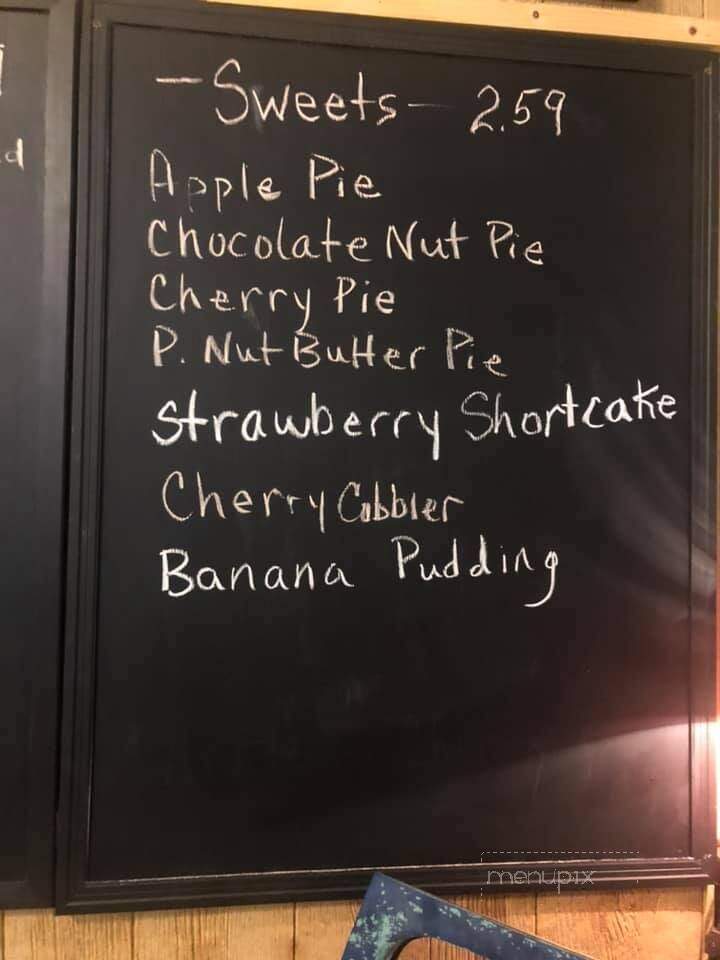 - Sweets - 2.59
Apple Pie
Chocolate Nut Pie
Cherry Pie
P. Nut Butter Pie
Strawberry Shortcake
Cherry Cobbler
Banana Pudding
d
menupix